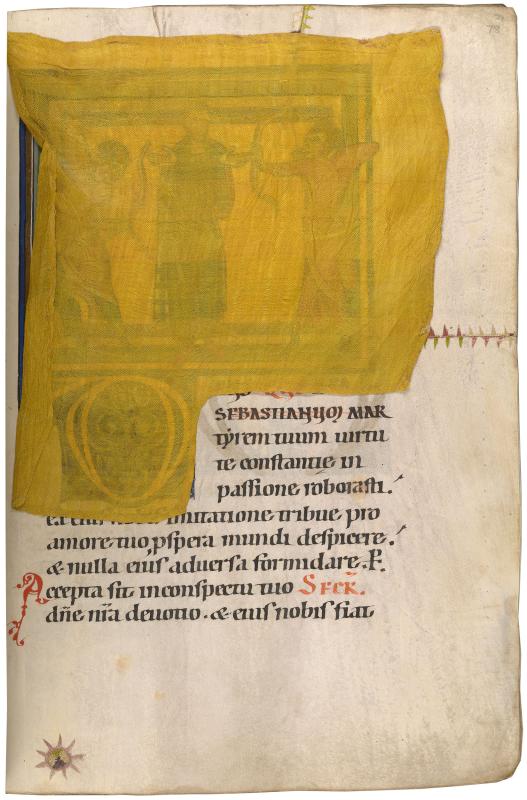 SEBASTIANUM MAR
tyrem tuum uirtu
te constantie in
passione roborasti.
imitatione tribue pro
amore tuo pspera mundi despicere.
& nulla eius aduersa formidare. P.
Accepta sit inconspectu tuo SECR̄.
dn̄e nr̄a deuotio. & eius nobis fiat